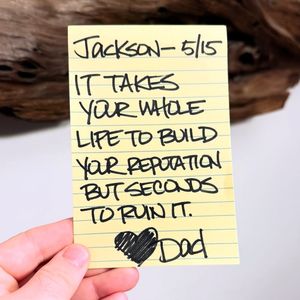 JACKSON- 5/15
IT TAKES
YOUR WHOLE
LIFE TO BUILD
YOUR REPUTATION
BUT SECONDS
TO RUIN IT.
Dad